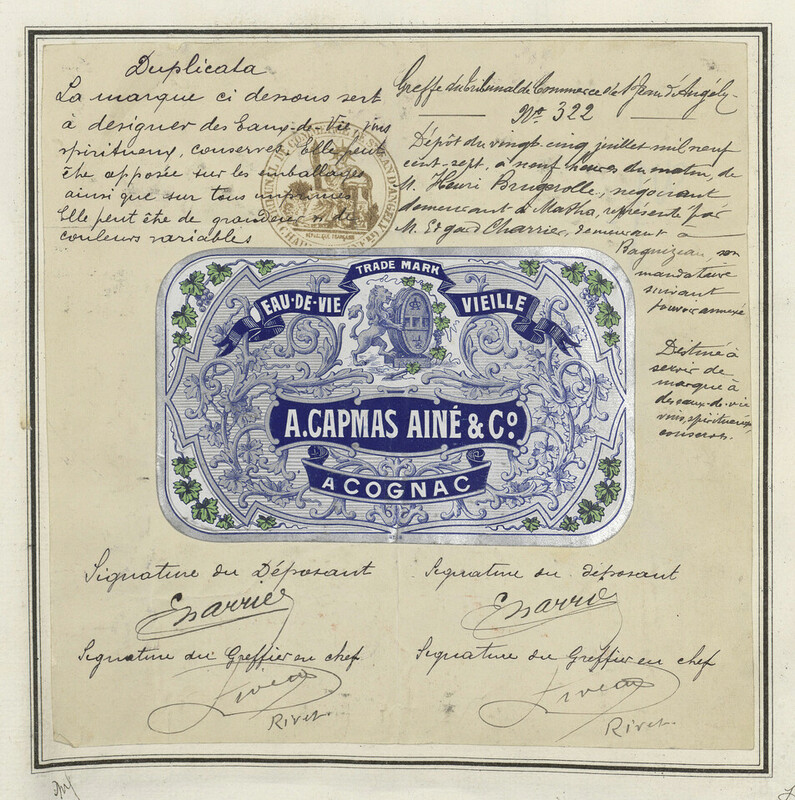 Duplicata
La marque ci dessous sert
à designer des Eaux-de-Vie, vins
spiritueux, conserves. Elle peut
être apposée sur les emballages
ainsi que sur tous imprimés
Elle peut être de grandeur et de
couleurs variables
Greffe du Tribunal de Commerce de St Jean d'Angély
No. 322
Dépôt du vingt-cinq juillet mil neuf
cent-sept, à neuf heures du matin, de
M. Henri Brugerolle, negociant
demeurant à Matha, représenté par
M. Edgard Charrier, demeurant à
Bagnizeau, son
mandataire
suivant
pouvoir annexé
Destiné à
servir de
marque à
des eaux-de-vie
vins, spiritueux,
conserves.
RÉPUBLIQUE FRANÇAISE
TRADE MARK
EAU-DE-VIE VIEILLE
A. CAPMAS AINÉ & Co.
A COGNAC
Signature du Déposant
ECharrier
Signature du Greffier en chef
Rivet
Signature du déposant
ECharrier
Signature du Greffier en chef
Rivet